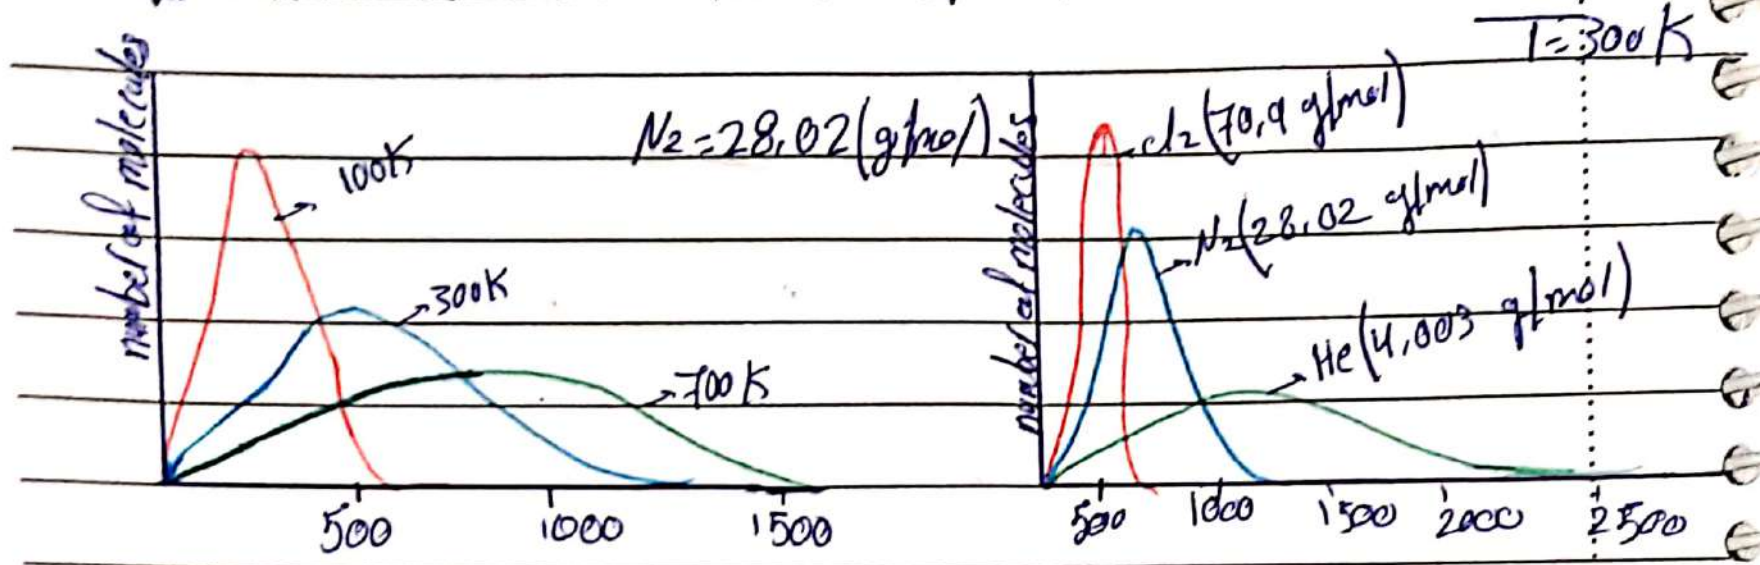 T=300K
number of molecules
N2=28,02(g/mol)
100K
300K
700K
500 1000 1500
number of molecules
cl2(70,9 g/mol)
N2(28,02 g/mol)
He(4,003 g/mol)
500 1000 1500 2000 2500